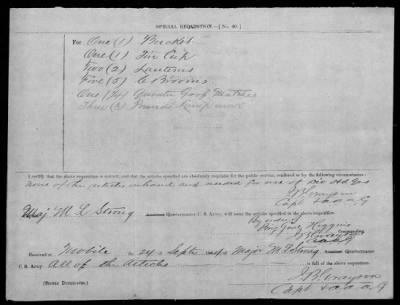 SPECIAL REQUISITION—[No. 40.]
For One (1) Bucket
One (1) Tin Cup
Two (2) Lanterns
Five (5) C Brooms
One (1/4) Quarter Matches
Three (3) Pounds
I certify that the above requisition is correct, and that the articles specified are absolutely requisite for the public service, rendered so by the following circumstances:
none of the articles on hand and needed for use of Div Hd Qrs
Capt & A A G
Maj. M L Strong Assistant Quartermaster C. S. Army, will issue the articles specified in the above requisition.
By order of
Maj Genl Higgins
Commanding.
Received at Mobile 24 Sept of Major M L Strong Assistant Quartermaster
C. S. Army, All of the Articles in full of the above requisition.
(SIGNED DUPLICATES.)
Capt & A A G